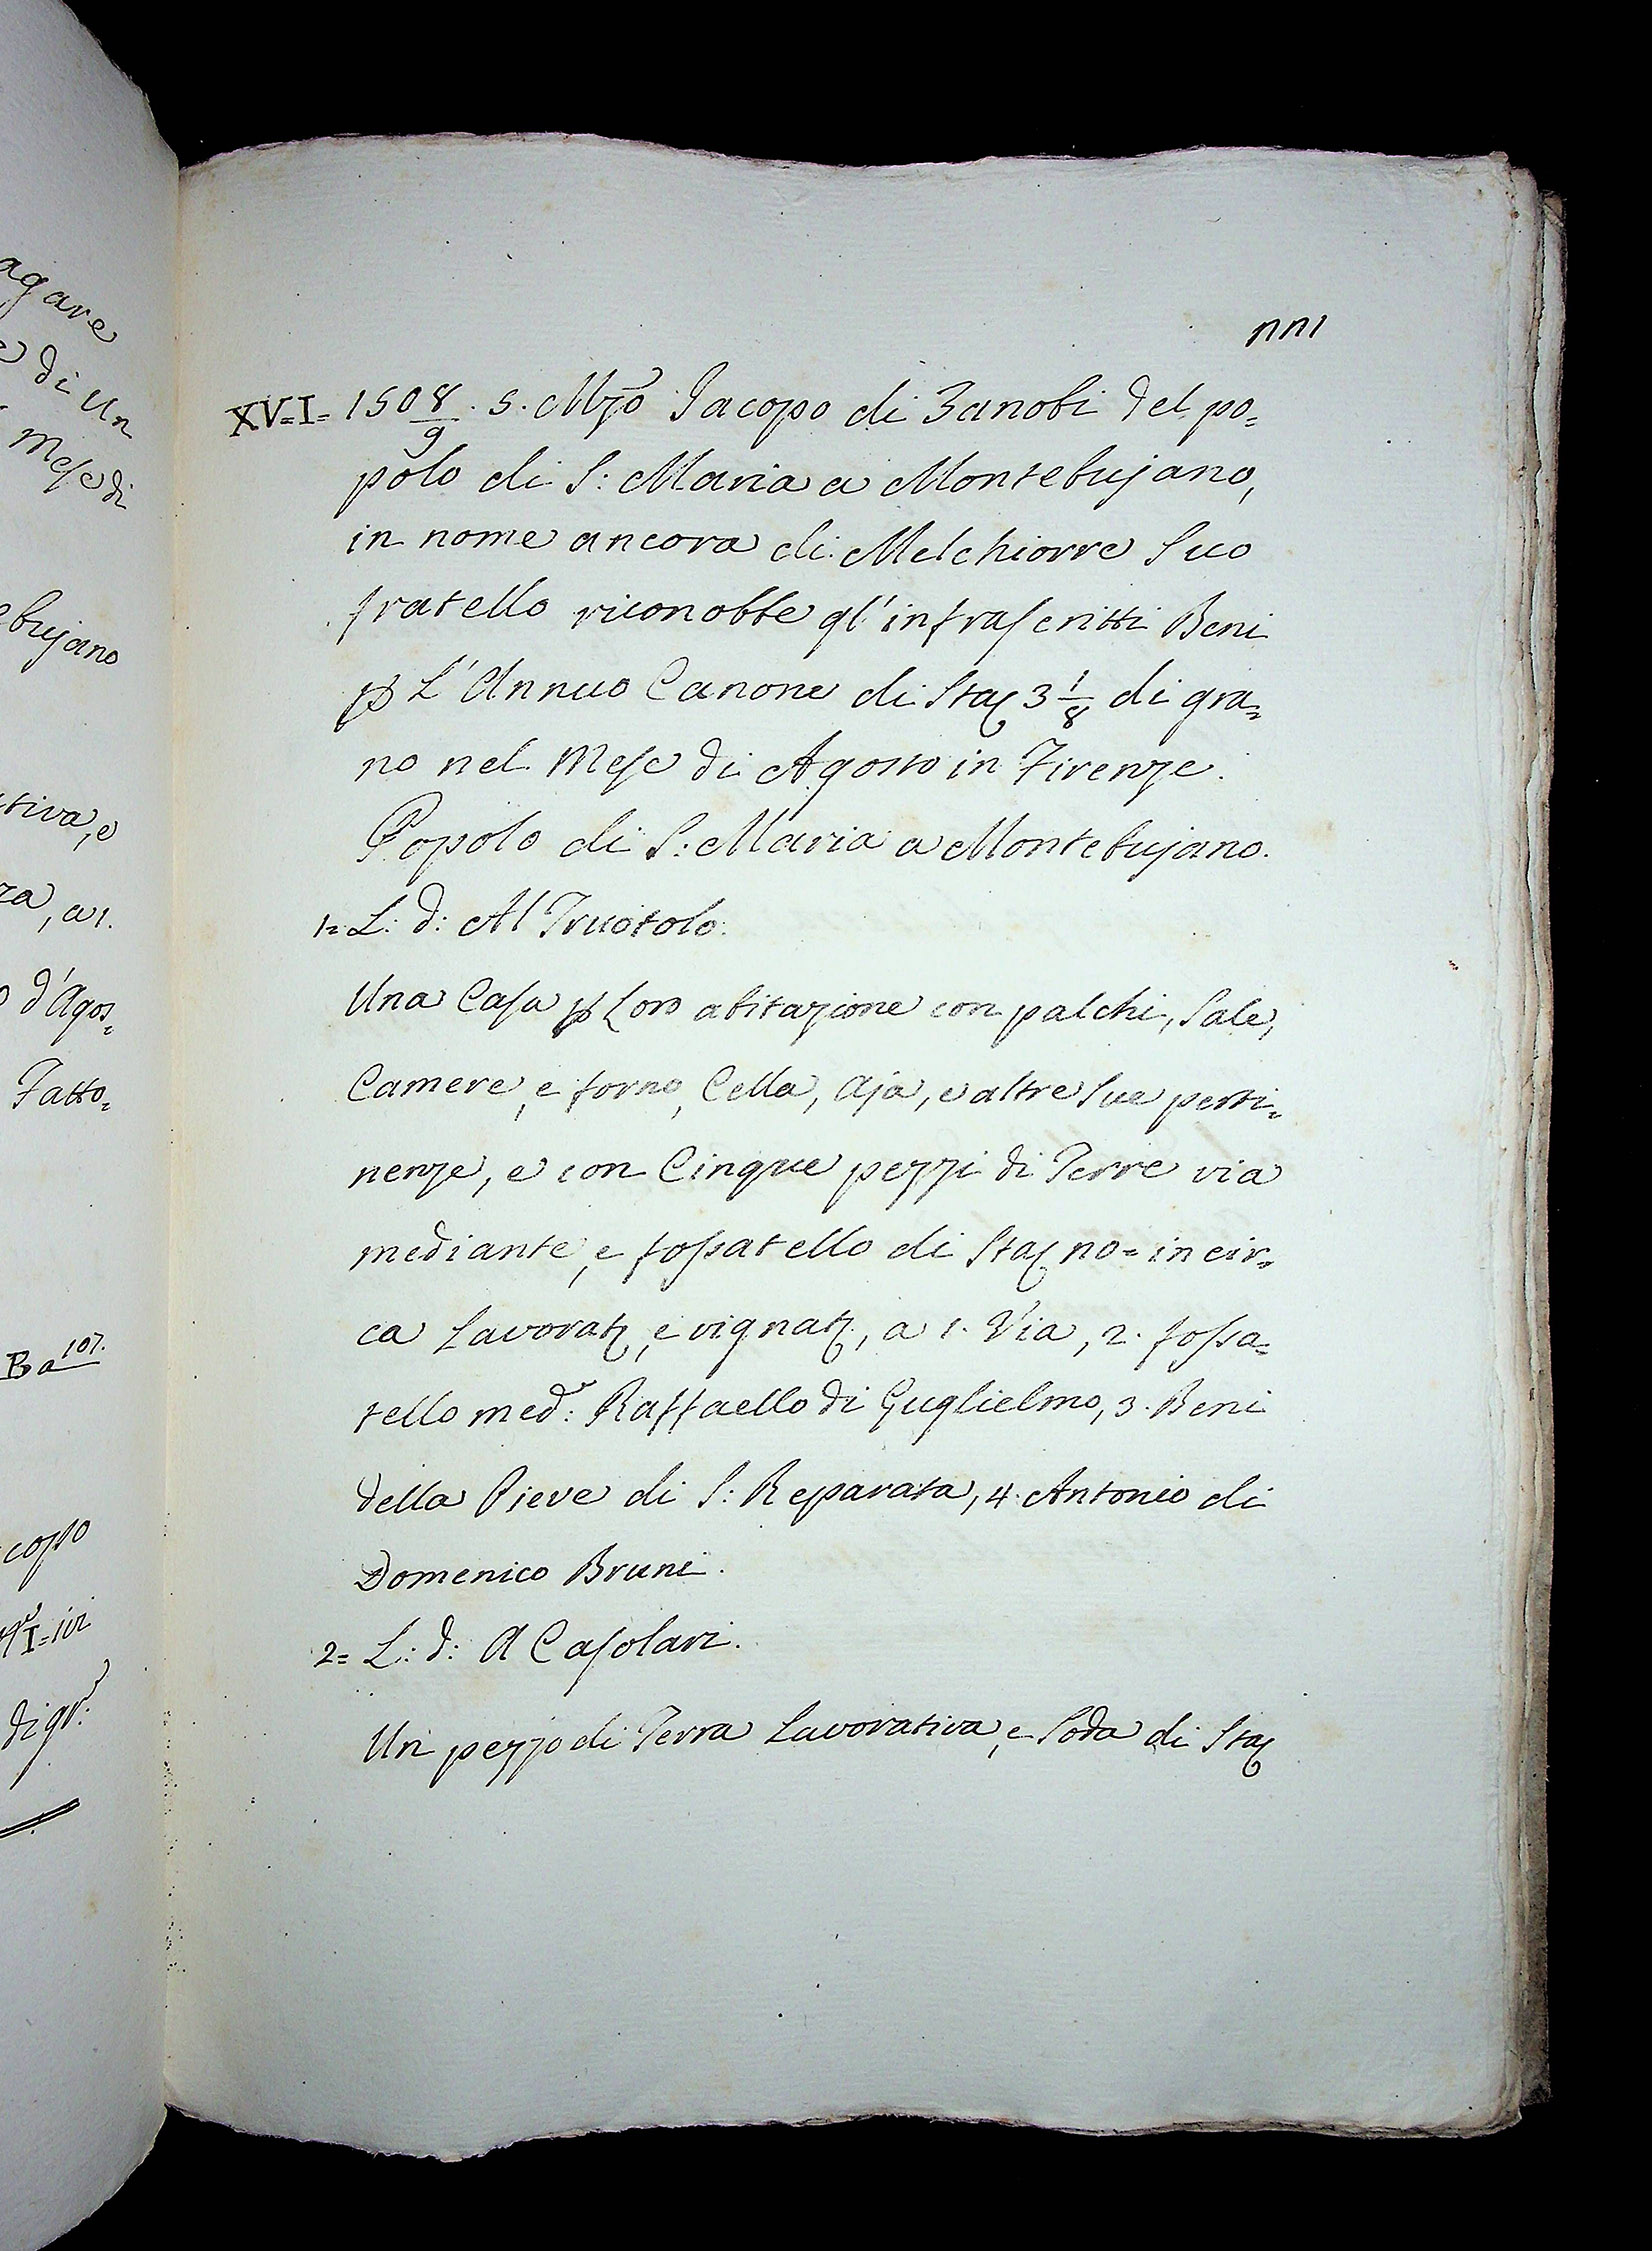 agare
e di Un
Mese di
ebujano
tiva, e
za, a 1.
o d'Agos=
Fatto=
B a 107.
copo
I= ivi
di gr:
nn1
XV=I= 1508/9. 5. Mzo Jacopo di Zanobi del po=
polo di S: Maria a Montebujano,
in nome ancora di Melchiorre Suo
fratello riconobbe gl'infrascritti Beni
p L'Annuo Canone di Staj 3 1/8 di gra=
no nel Mese di Agosto in Firenze.
Popolo di S: Maria a Montebujano.
1= L: d: Al Truotolo.
Una Casa p Loro abitazione con palchi, Sale,
Camere, e forno, Cella, Aja, e altre Sue perti=
nenze, e con Cinque pezzi di Terre via
mediante, e fossatello di Staj no= in cir=
ca Lavorat, e vignat, a 1. Via, 2. fossa=
tello med: Raffaello di Guglielmo, 3. Beni
della Pieve di S: Reparata, 4. Antonio di
Domenico Bruni.
2= L: d: A Casolari.
Un pezzo di Terra Lavorativa, e Soda di Staj